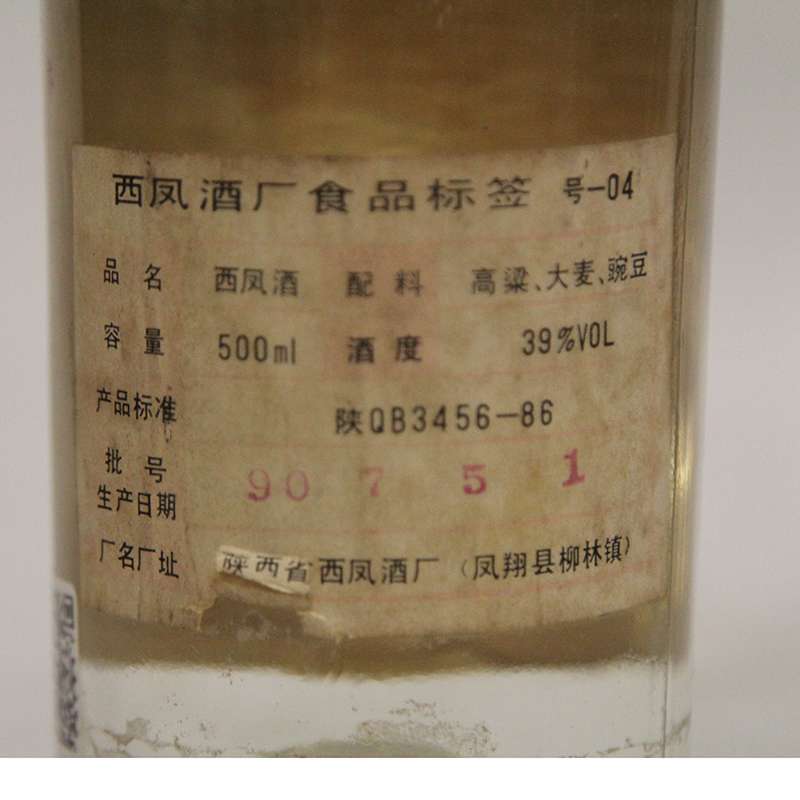 西凤酒厂食品标签 号-04
品名 西凤酒 配料 高粱、大麦、豌豆
容量 500ml 酒度 39%VOL
产品标准 陕QB3456-86
批号
生产日期 90 7 5 1
厂名厂址 陕西省西凤酒厂(凤翔县柳林镇)